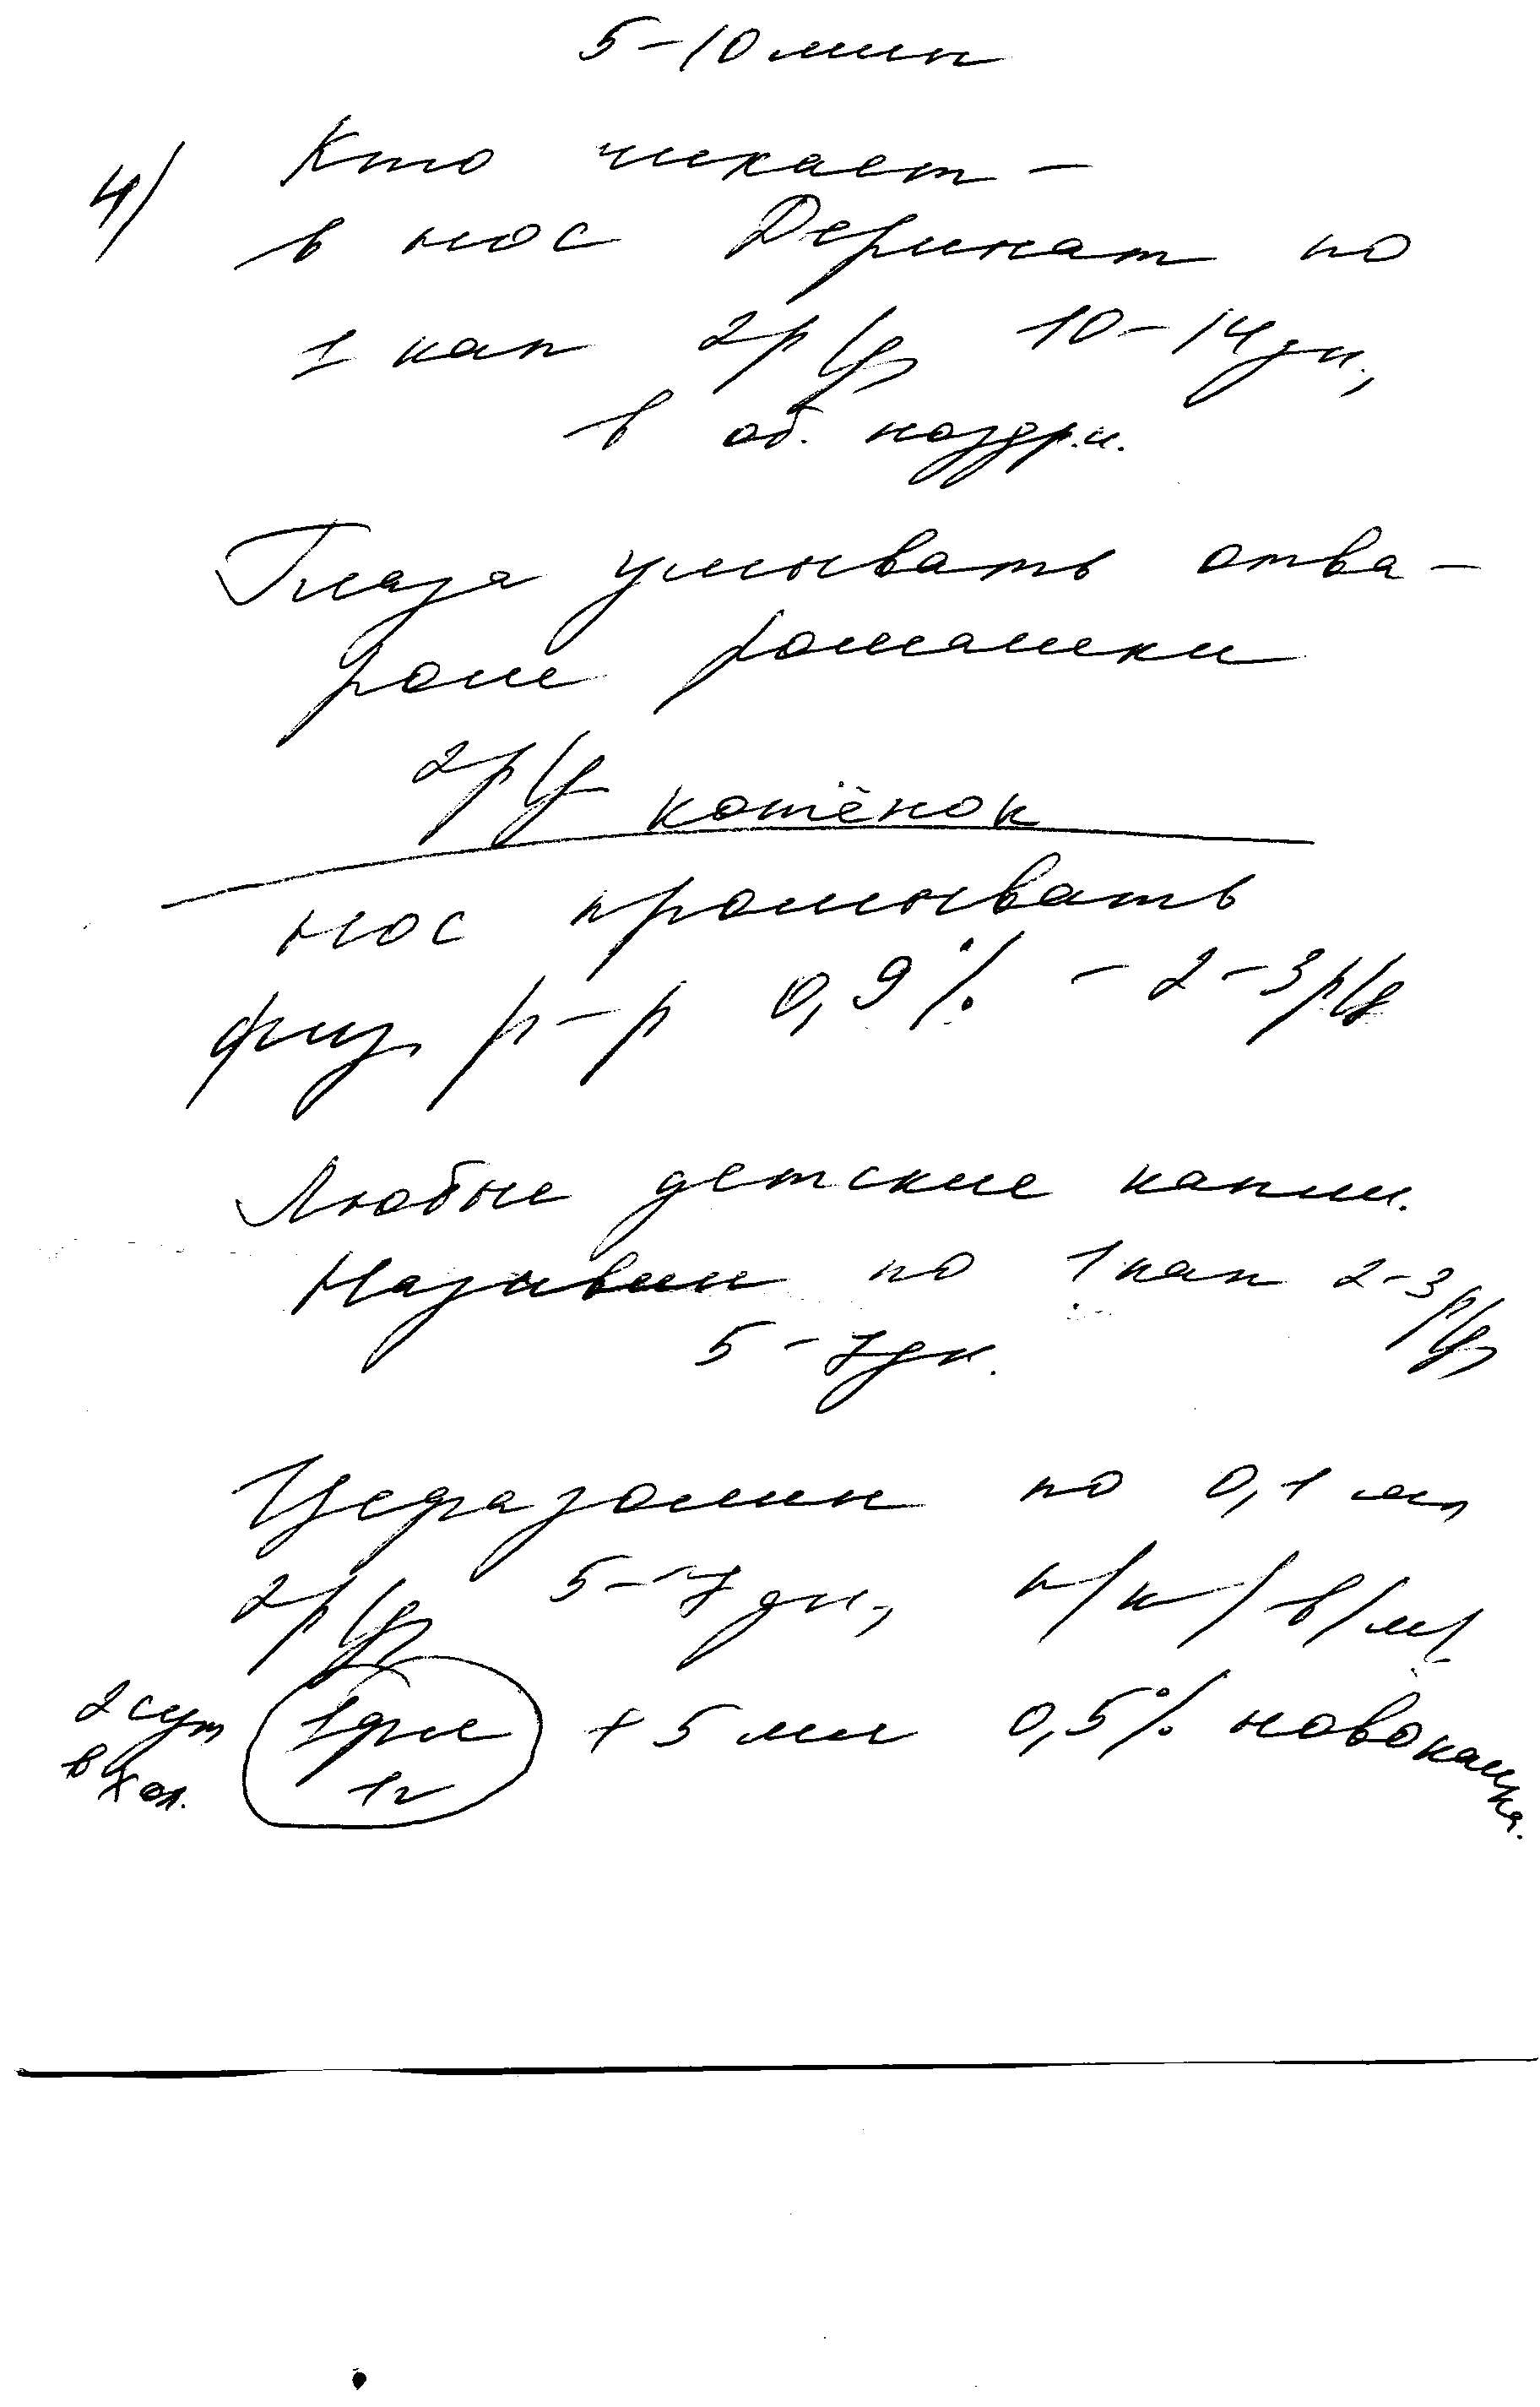 5-10 мин
4) Кто чихает -
в нос Деринат по
1 кап 2р/д 10-14 дн.,
в об. ноздри.
Глаза умывать отва-
ром ромашки
2р/д котёнок
нос промывать
физ. р-р 0,9% - 2-3 р/д
Любые детские капли.
Називин по 1 кап 2-3 р/д
5-7 дн.
Цефазолин по 0,1 мл
2р/д 5-7 дн., п/к/в/м/
2 сут 1 фл + 5 мл 0,5% новокаина.
в хол. 1 г